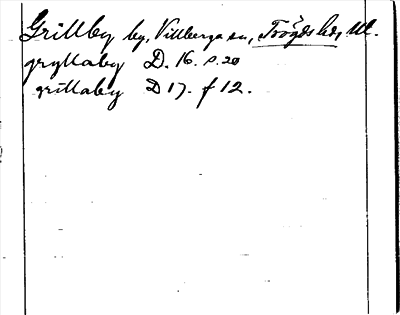 Grillby by, Villberga sn, Trögds hd, Ul.
gryllaby D. 16. s. 20
grillaby D 17. f 12.